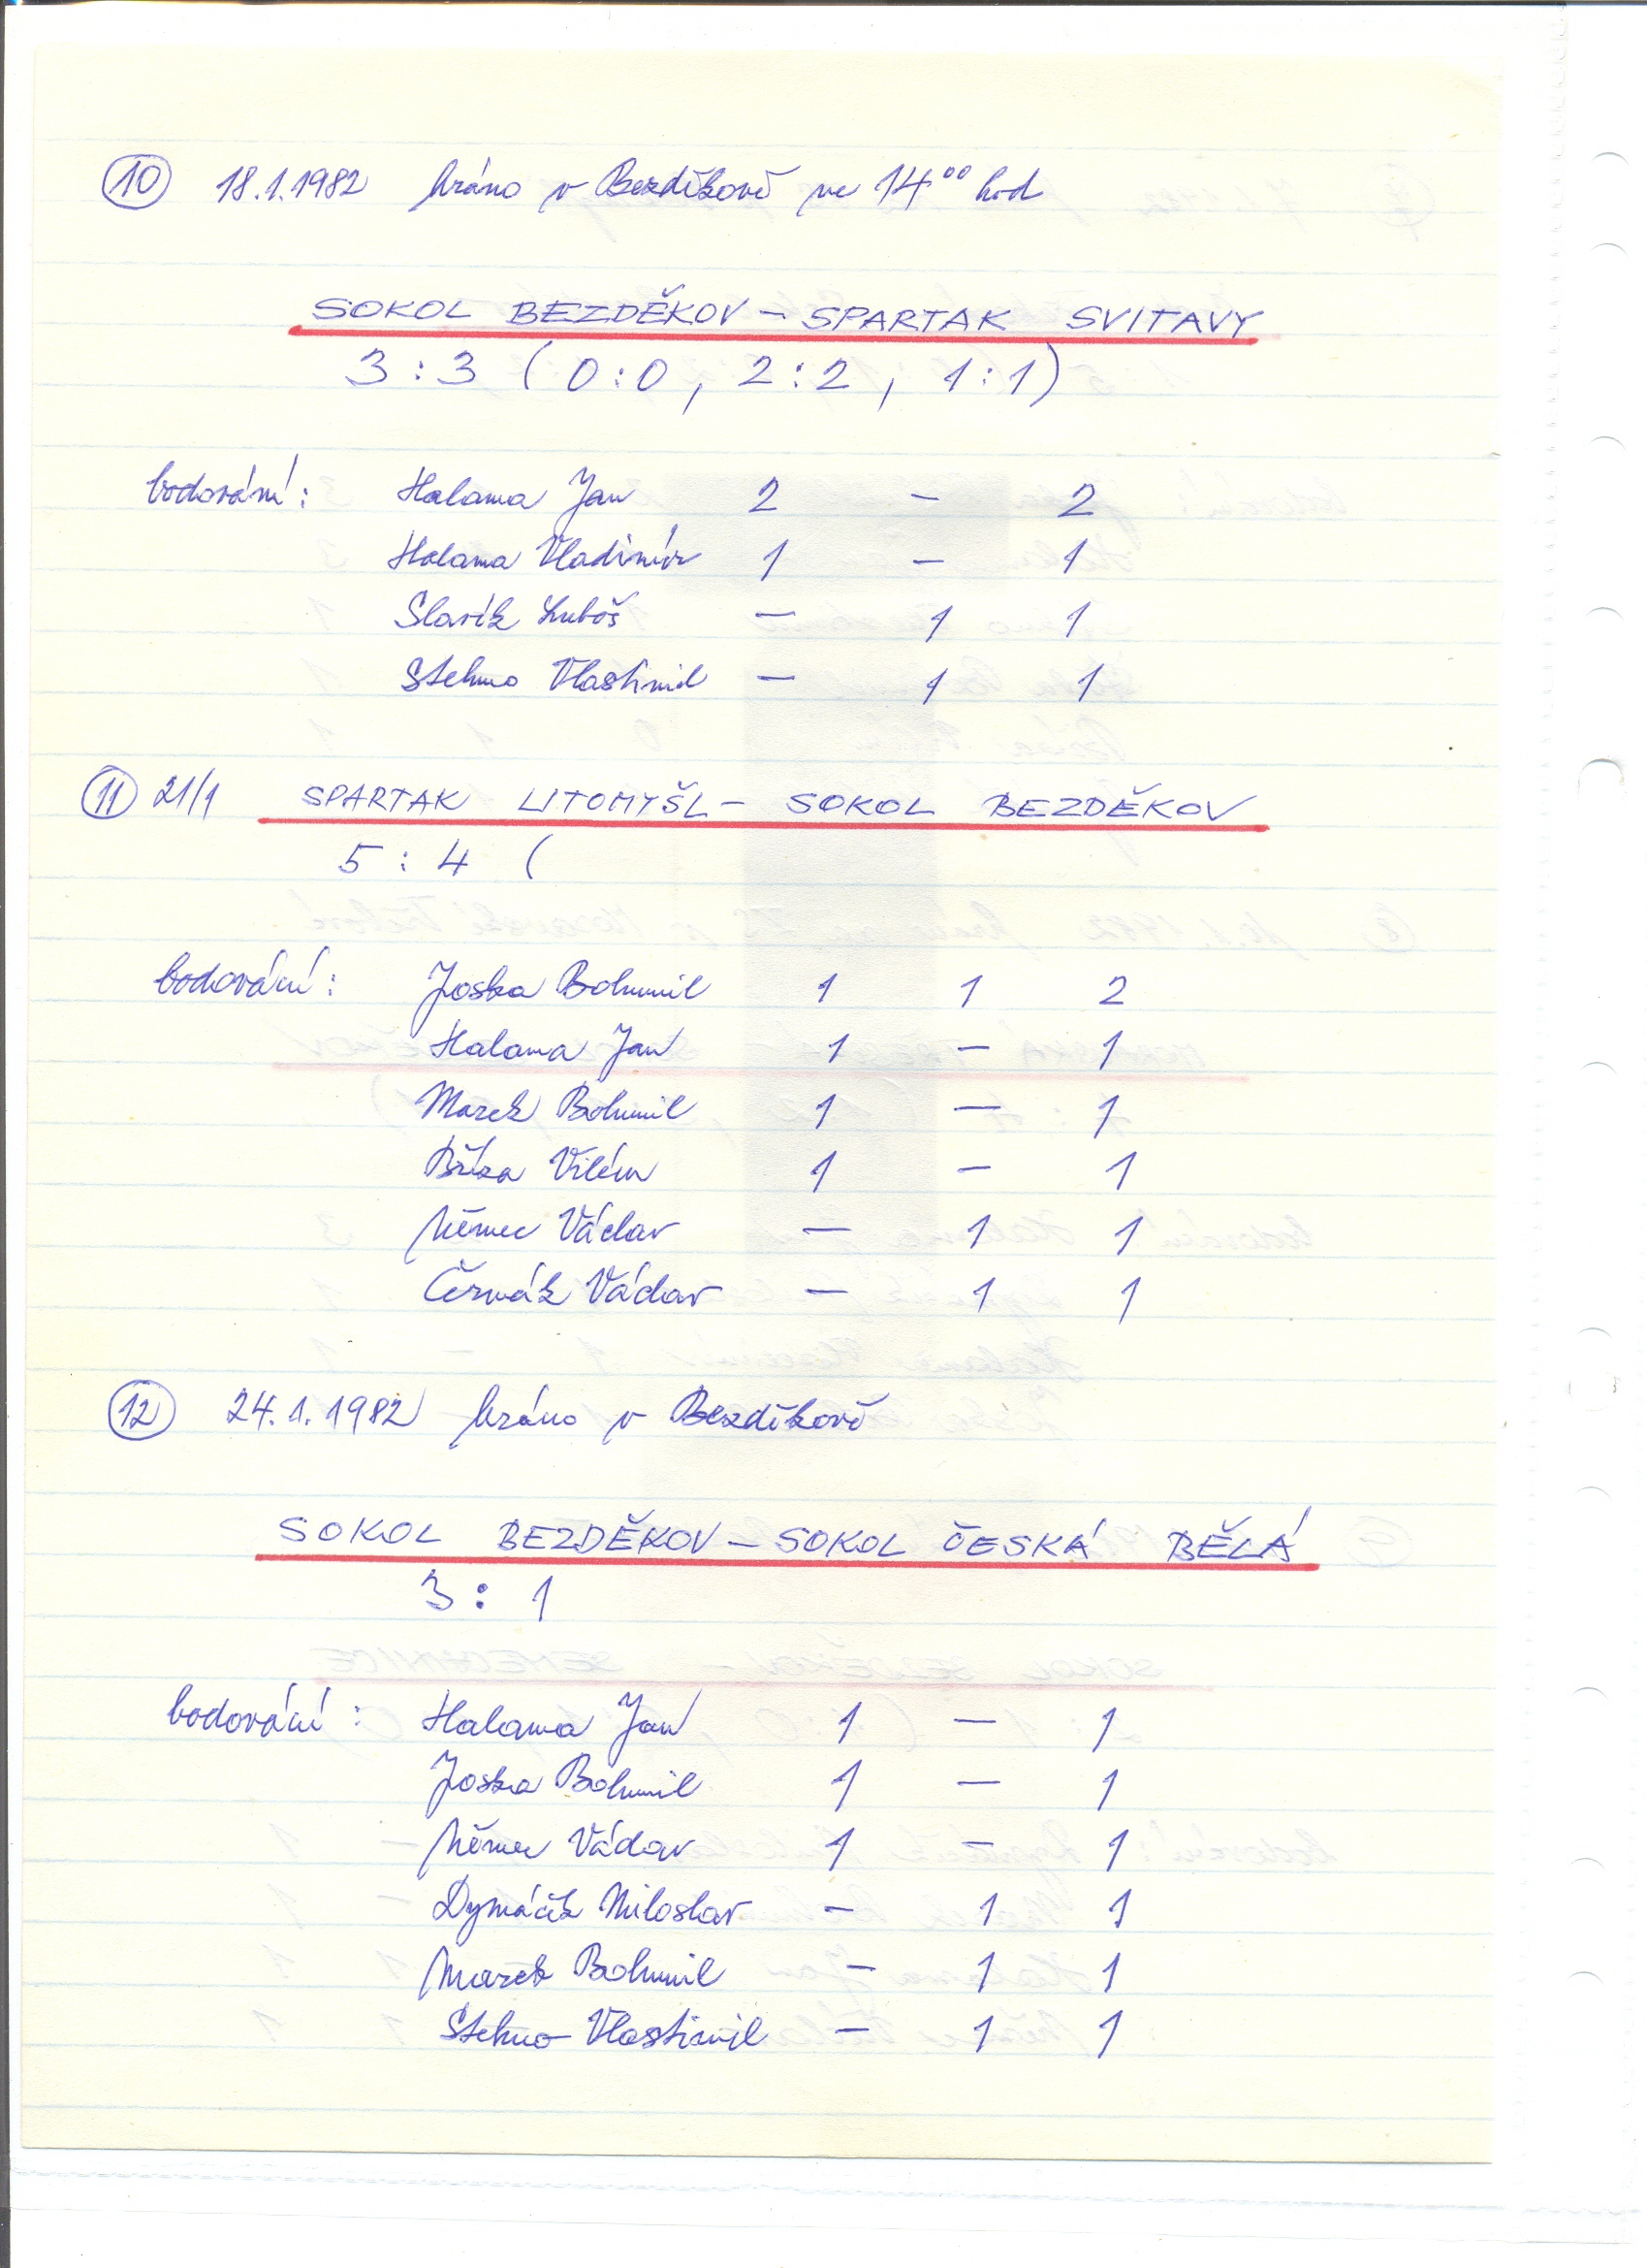 10 18.1.1982 hráno v Bezděkově ve 14⁰⁰ hod
SOKOL BEZDĚKOV – SPARTAK SVITAVY
3 : 3 ( 0:0 , 2:2 , 1:1 )
bodování: Halama Jan 2 – 2
Halama Vladimír 1 – 1
Slavík Luboš – 1 1
Stehno Vlastimil – 1 1
11 21/1 SPARTAK LITOMYŠL – SOKOL BEZDĚKOV
5 : 4 (
bodování: Joska Bohumil 1 1 2
Halama Jan 1 – 1
Marek Bohumil 1 – 1
Bříza Vilém 1 – 1
Němec Václav – 1 1
Čermák Václav – 1 1
12 24.1.1982 hráno v Bezděkově
SOKOL BEZDĚKOV – SOKOL ČESKÁ BĚLÁ
3 : 1
bodování: Halama Jan 1 – 1
Joska Bohumil 1 – 1
Němec Václav 1 – 1
Dymáček Miloslav – 1 1
Marek Bohumil – 1 1
Stehno Vlastimil – 1 1